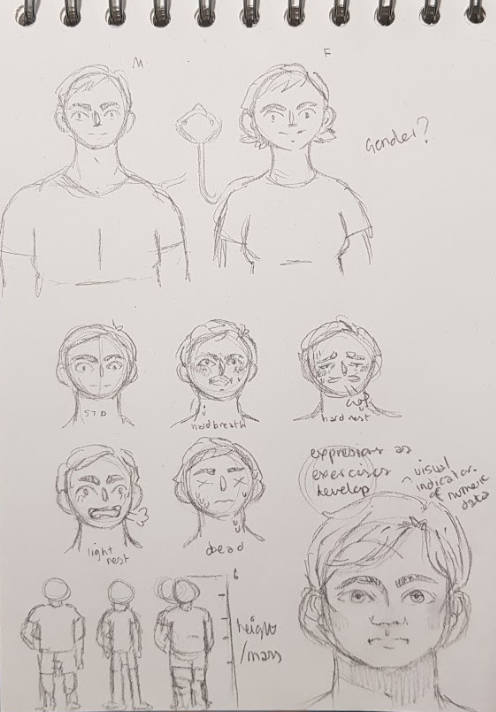 M
F
Gender?
STD
hold breath
hard rest
light
rest
dead
expressions as
exercises
develop
visual
indicator
of numeric
data
6
height
/mass